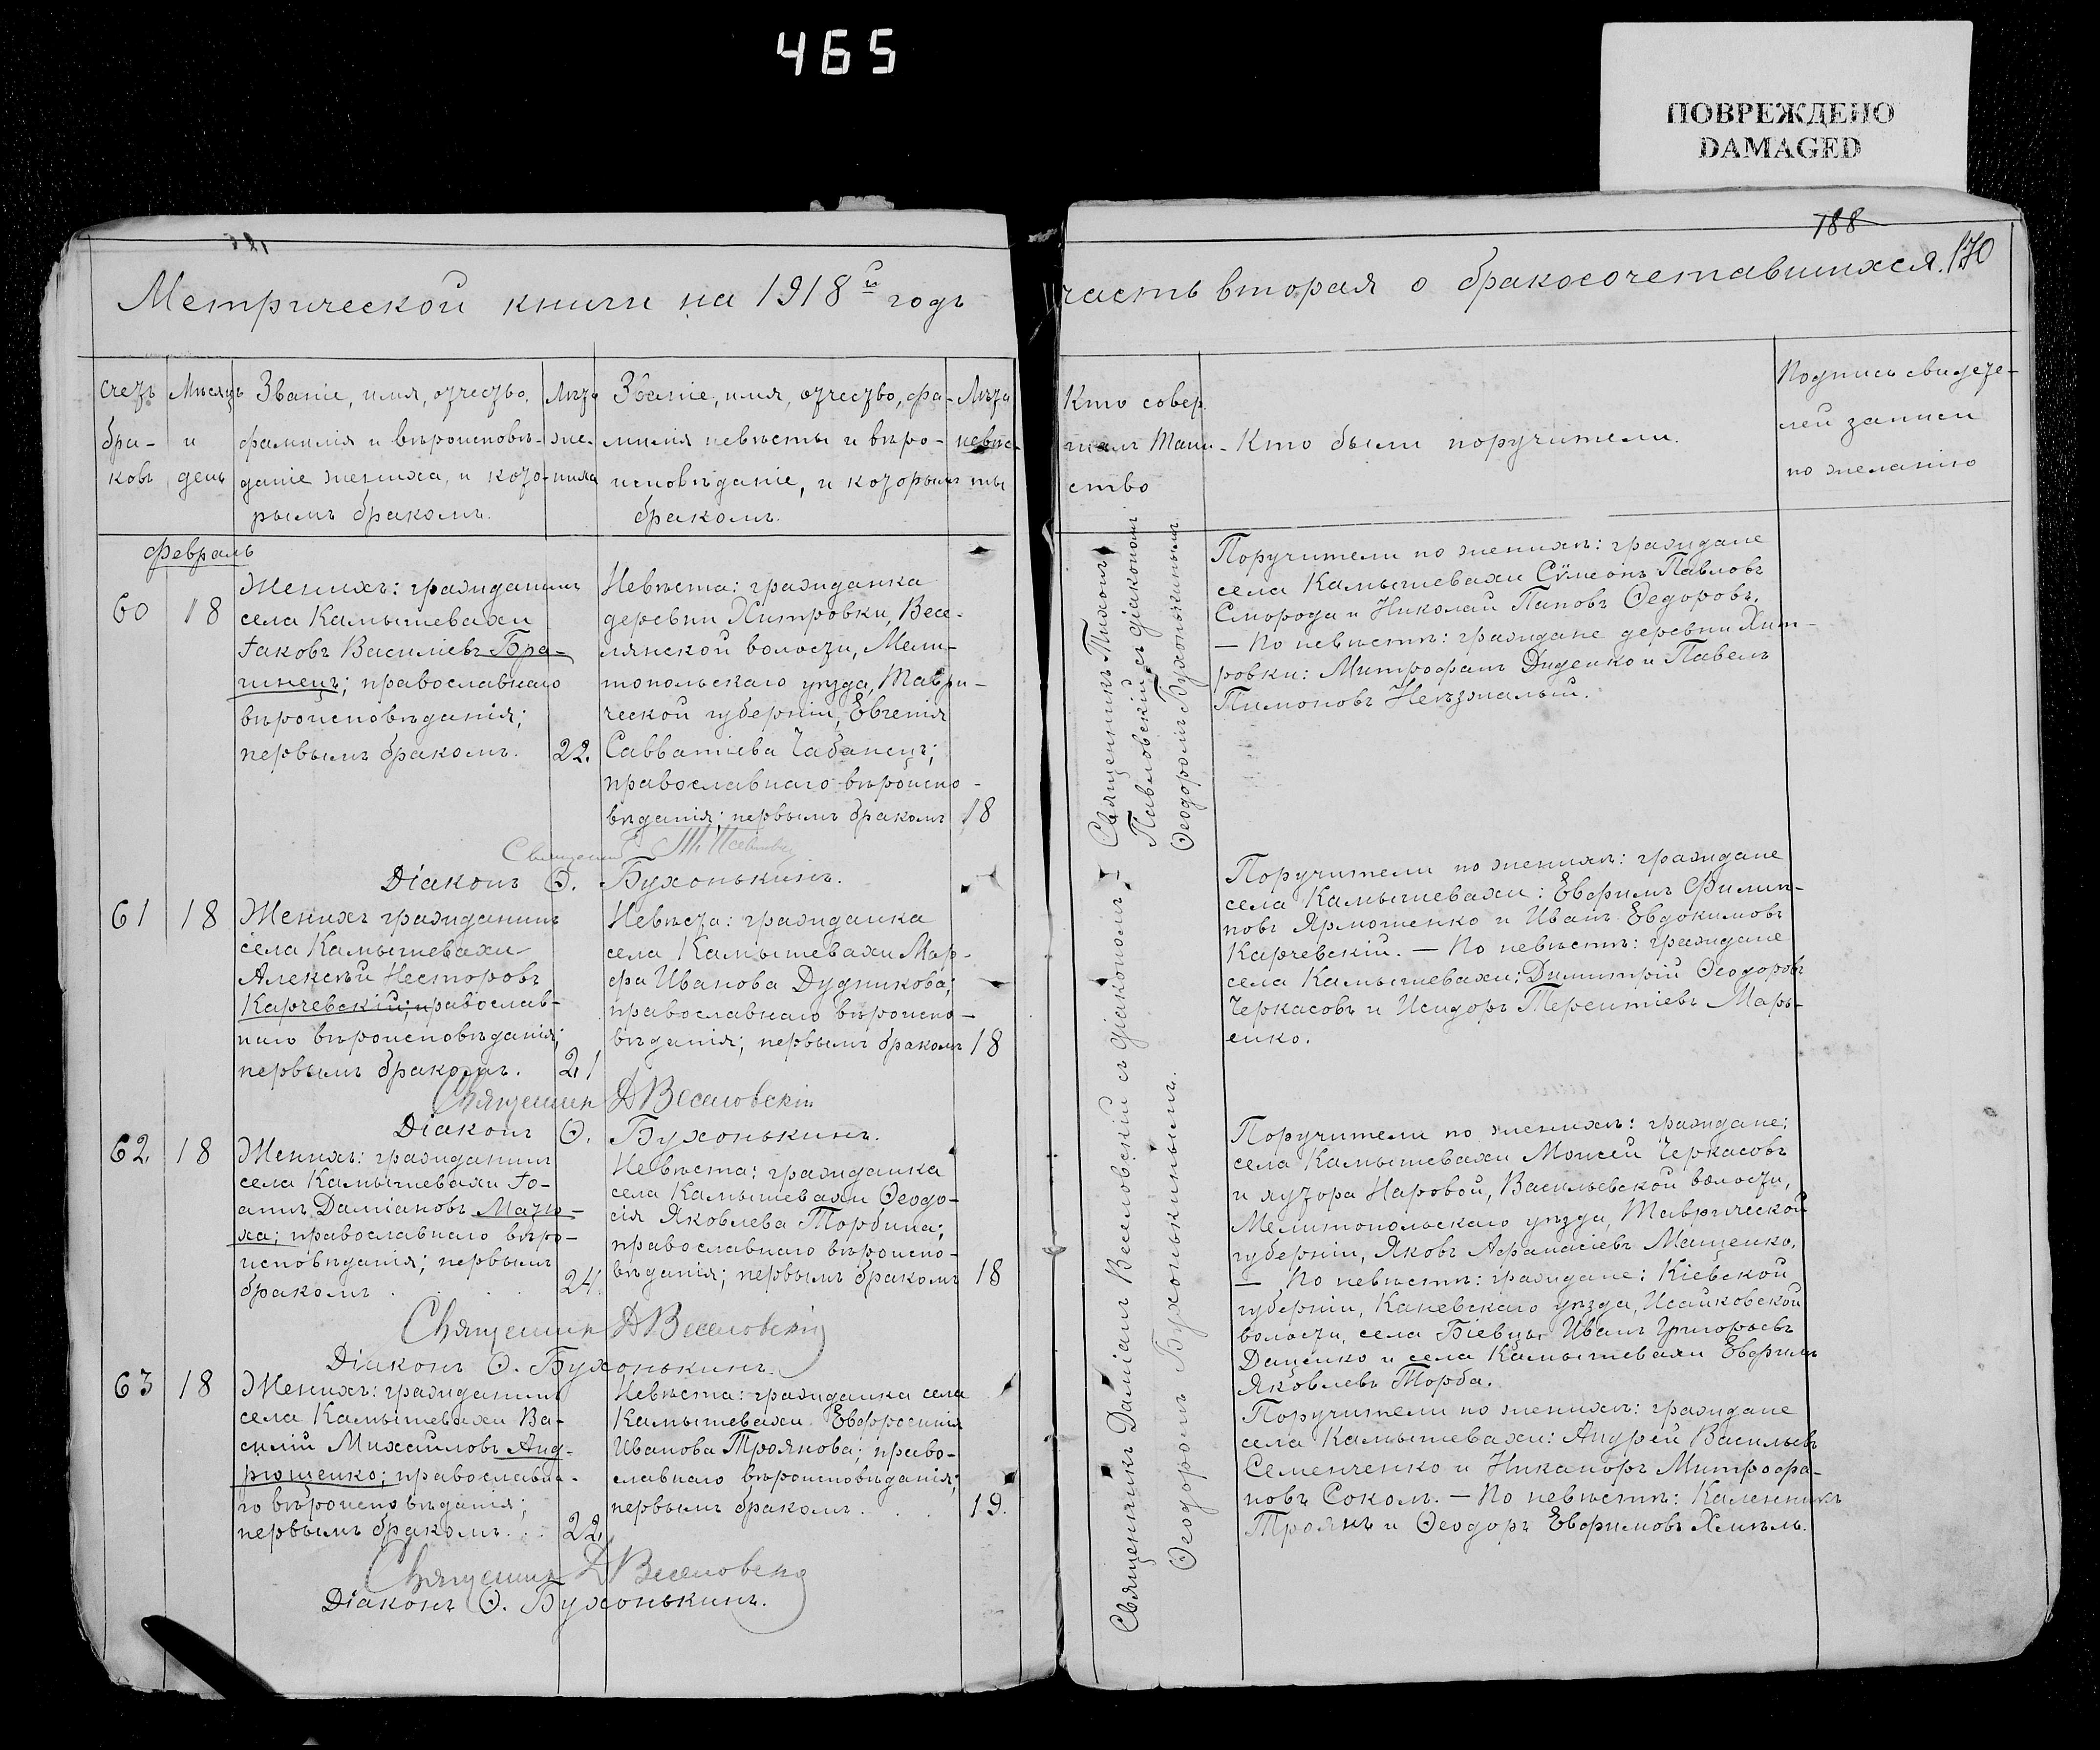 465
ПОВРЕЖДЕНО
DAMAGED
Метрической книги на 1918й годъ
часть вторая о бракосочетавшихся.
188
170
Счетъ браковъ
Мѣсяцъ и день
Званіе, имя, отчество,
фамилія и вѣроисповѣ-
даніе жениха, и кото-
рымъ бракомъ.
Лѣта жениха
Званіе, имя, отчество, фа-
милія невѣсты и вѣро-
исповѣданіе, и которымъ
бракомъ.
Лѣта невѣсты
Кто совер
шалъ Таин-
ство
Кто были поручители.
Подпись свидете-
лей записи
по желанію
Февраль
60
18
Женихъ: гражданинъ
села Камышевахи
Іаковъ Василіевъ Бра-
гинецъ; православнаго
вѣроисповѣданія;
первымъ бракомъ.
22.
Невѣста: гражданка
деревни Хитровки, Весе-
лянской волости, Мели-
топольскаго уѣзда, Таври-
ческой губерніи, Евгенія
Савватіева Чабанецъ;
православнаго вѣроиспо-
вѣданія; первымъ бракомъ
18
Священникъ Тихонъ
Павловскій съ діакономъ
Ѳеодоромъ Бухонькинымъ
Поручители по женихѣ: граждане
села Камышевахи Сѵмеонъ Павловъ
Сморода и Николай Пановъ Ѳедоровъ.
— По невѣстѣ: граждане деревни Хит-
ровки: Митрофанъ Диденко и Павелъ
Пимоновъ
Діаконъ Ѳ. Бухонькинъ.
61
18
Женихъ гражданинъ
села Камышевахи
Алексѣй Несторовъ
Карчевскій; православ-
наго вѣроисповѣданія;
первымъ бракомъ.
21
Невѣста: гражданка
села Камышевахи Мар-
фа Иванова Дудникова;
православнаго вѣроиспо-
вѣданія; первымъ бракомъ
18
Священникъ Даміанъ Веселовскій съ діакономъ
Ѳеодоромъ Бухонькинымъ.
Поручители по женихѣ: граждане
села Камышевахи: Евфимъ Филип-
повъ Ярмошенко и Иванъ Евдокимовъ
Карчевскій. — По невѣстѣ: граждане
села Камышевахи: Димитрій Ѳеодоровъ
Черкасовъ и Исидоръ Терентіевъ Марь-
енко.
Священник Д Веселовскій
Діаконъ Ѳ. Бухонькинъ.
62.
18
Женихъ: гражданинъ
села Камышевахи Іо-
аннъ Даміановъ Матю-
ха; православнаго вѣро-
исповѣданія; первымъ
бракомъ . . . .
24.
Невѣста: гражданка
села Камышевахи Ѳеодо-
сія Яковлева Торбина;
православнаго вѣроиспо-
вѣданія; первымъ бракомъ
18
Поручители по женихѣ: граждане;
села Камышевахи Моисей Черкасовъ
и хутора Наровой, Васильевской волости,
Мелитопольскаго уѣзда, Таврической
губерніи, Яковъ Афанасіевъ Мащенко.
— По невѣстѣ: граждане: Кіевской
губерніи, Каневскаго уѣзда, Исайковской
волости, села Біевцы Иванъ Григорьевъ
Даценко и села Камышевахи Евфимъ
Яковлевъ Торба.
Священник Д Веселовскій
Діаконъ Ѳ. Бухонькинъ.
63
18
Женихъ: гражданинъ
села Камышевахи Ва-
силій Михайловъ Анд-
рющенко; православна-
го вѣроисповѣданія;
первымъ бракомъ. . .
22.
Невѣста: гражданка села
Камышевахи Евфросинія
Иванова Троянова; право-
славнаго вѣроисповѣданія;
первымъ бракомъ. . .
19.
Поручители по женихѣ: граждане
села Камышевахи: Андрей Васильевъ
Семенченко и Никаноръ Митрофа-
новъ Соколъ. — По невѣстѣ: Каленникъ
Троянъ и Ѳеодоръ Евфимовъ Хмѣль.
Священник Д Веселовскій
Діаконъ Ѳ. Бухонькинъ.